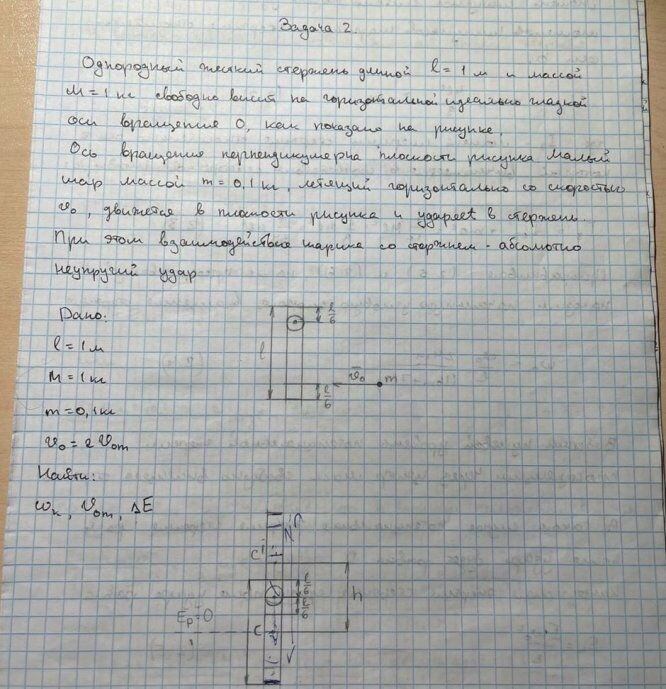 Задача 2.
Однородный жесткий стержень длиной l = 1 м и массой
M = 1 кг свободно висит на горизонтальной идеально гладкой
оси вращения О, как показано на рисунке.
Ось вращения перпендикулярна плоскости рисунка Малый
шар массой m = 0,1 кг, летящий горизонтально со скоростью
v₀, движется в плоскости рисунка и ударяет в стержень.
При этом взаимодействие шарика со стержнем - абсолютно
неупругий удар
Дано:
l = 1 м
M = 1 кг
m = 0,1 кг
v₀ = 2 v₀m
Найти:
ωк, v₀m, ΔE
l/6
l
v̅₀
m
l/6
C'
h
Eр=0
C